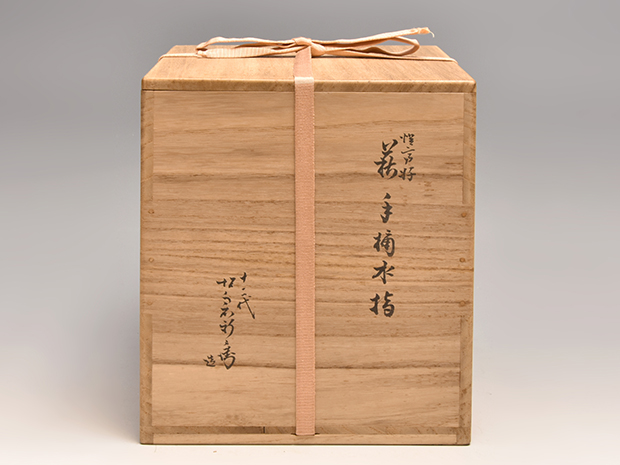 惺斎好
萩 手桶水指
十一代
坂高麗左衛門
造